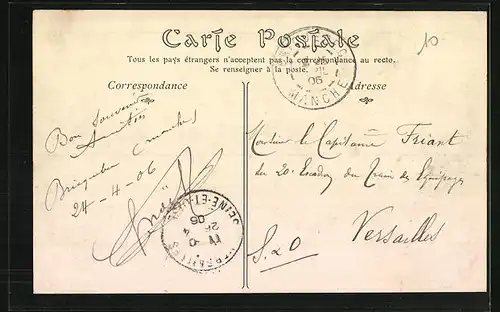 Carte Postale
Tous les pays étrangers n'acceptent pas la correspondance au recto.
Se renseigner à la poste.
Correspondance
Adresse
10
MANCHE
06
Bon souvenir
Amitiés
Bricquebec (manche)
24-4-06
Monsieur le Capitaine Friant
du 20e Escadron du Train des Equipages
Versailles
S & O
VERSAILLES
SEINE-ET-OISE
26 4
06